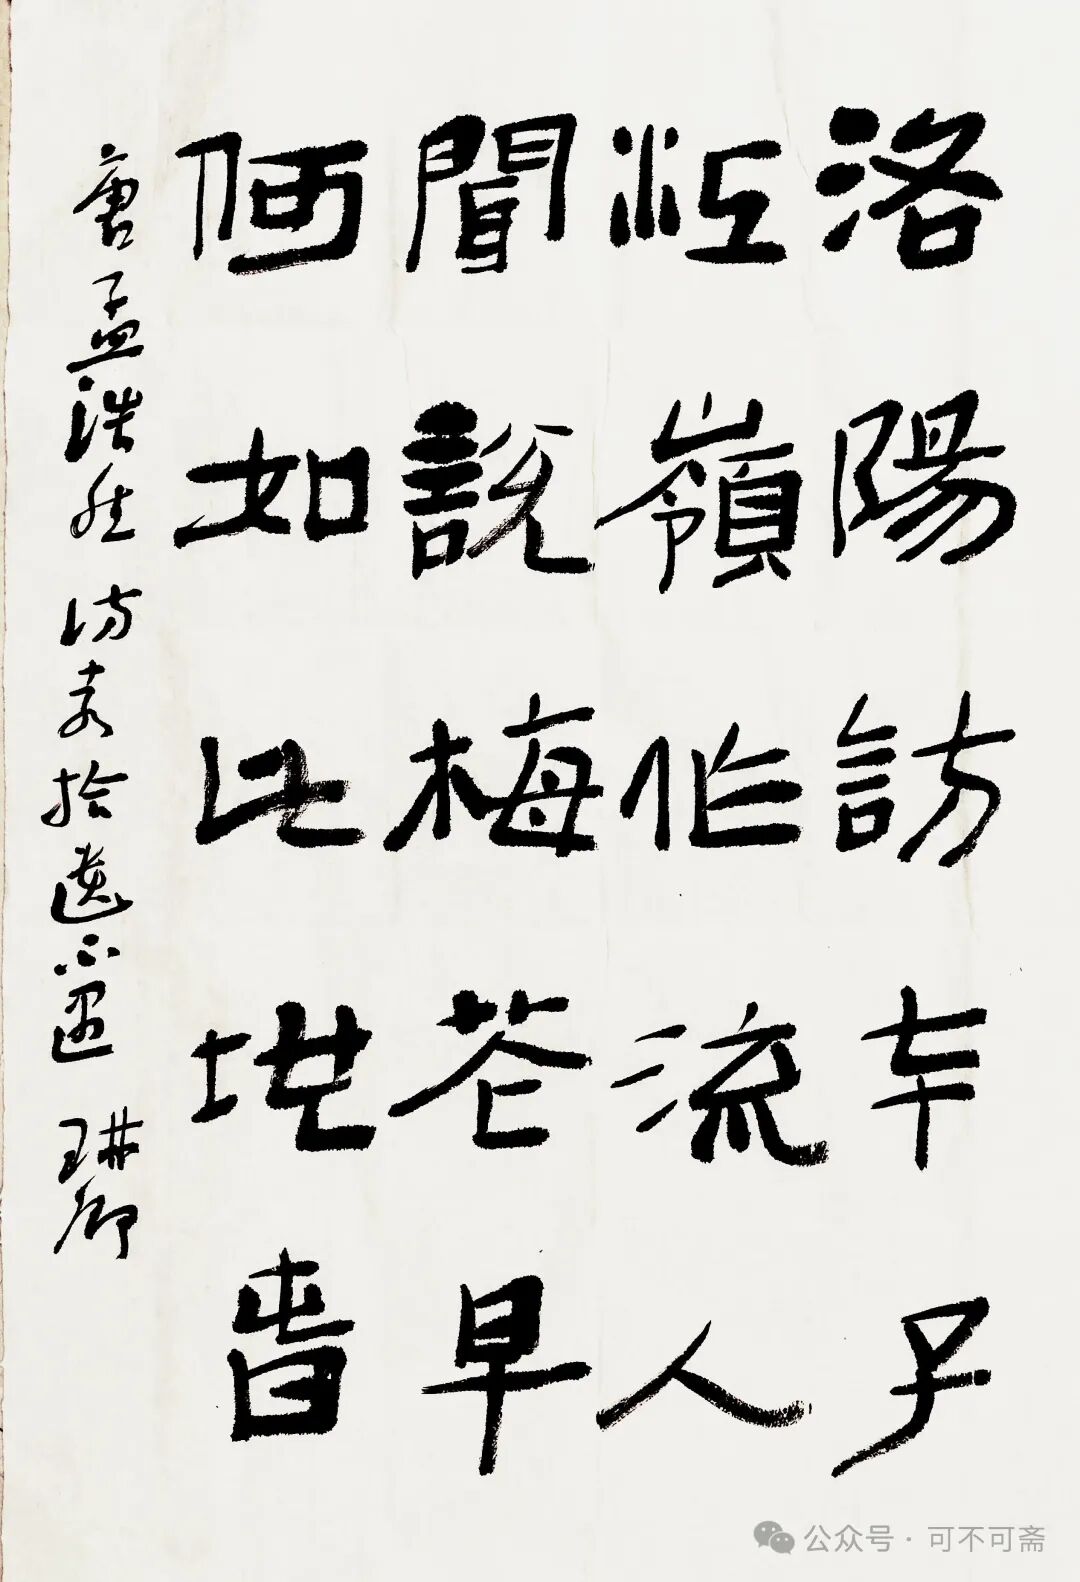 洛陽訪才子
江嶺作流人
聞說梅花早
何如此地春
唐孟浩然訪袁拾遺不遇 琳卿
公众号·可不可斋